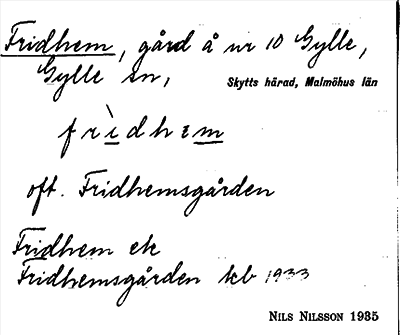 Fridhem, gård å nr 10 Gylle,
Gylle sn, Skytts härad, Malmöhus län
frìdhɛm
oft. Fridhemsgården
Fridhem ek
Fridhemsgården kb 1933
NILS NILSSON 1935